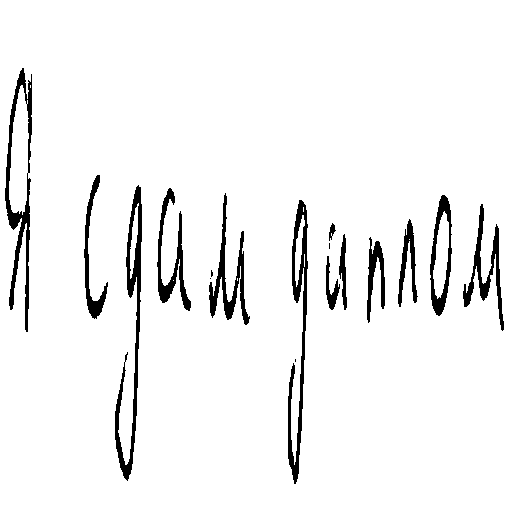 Я сдам диплом